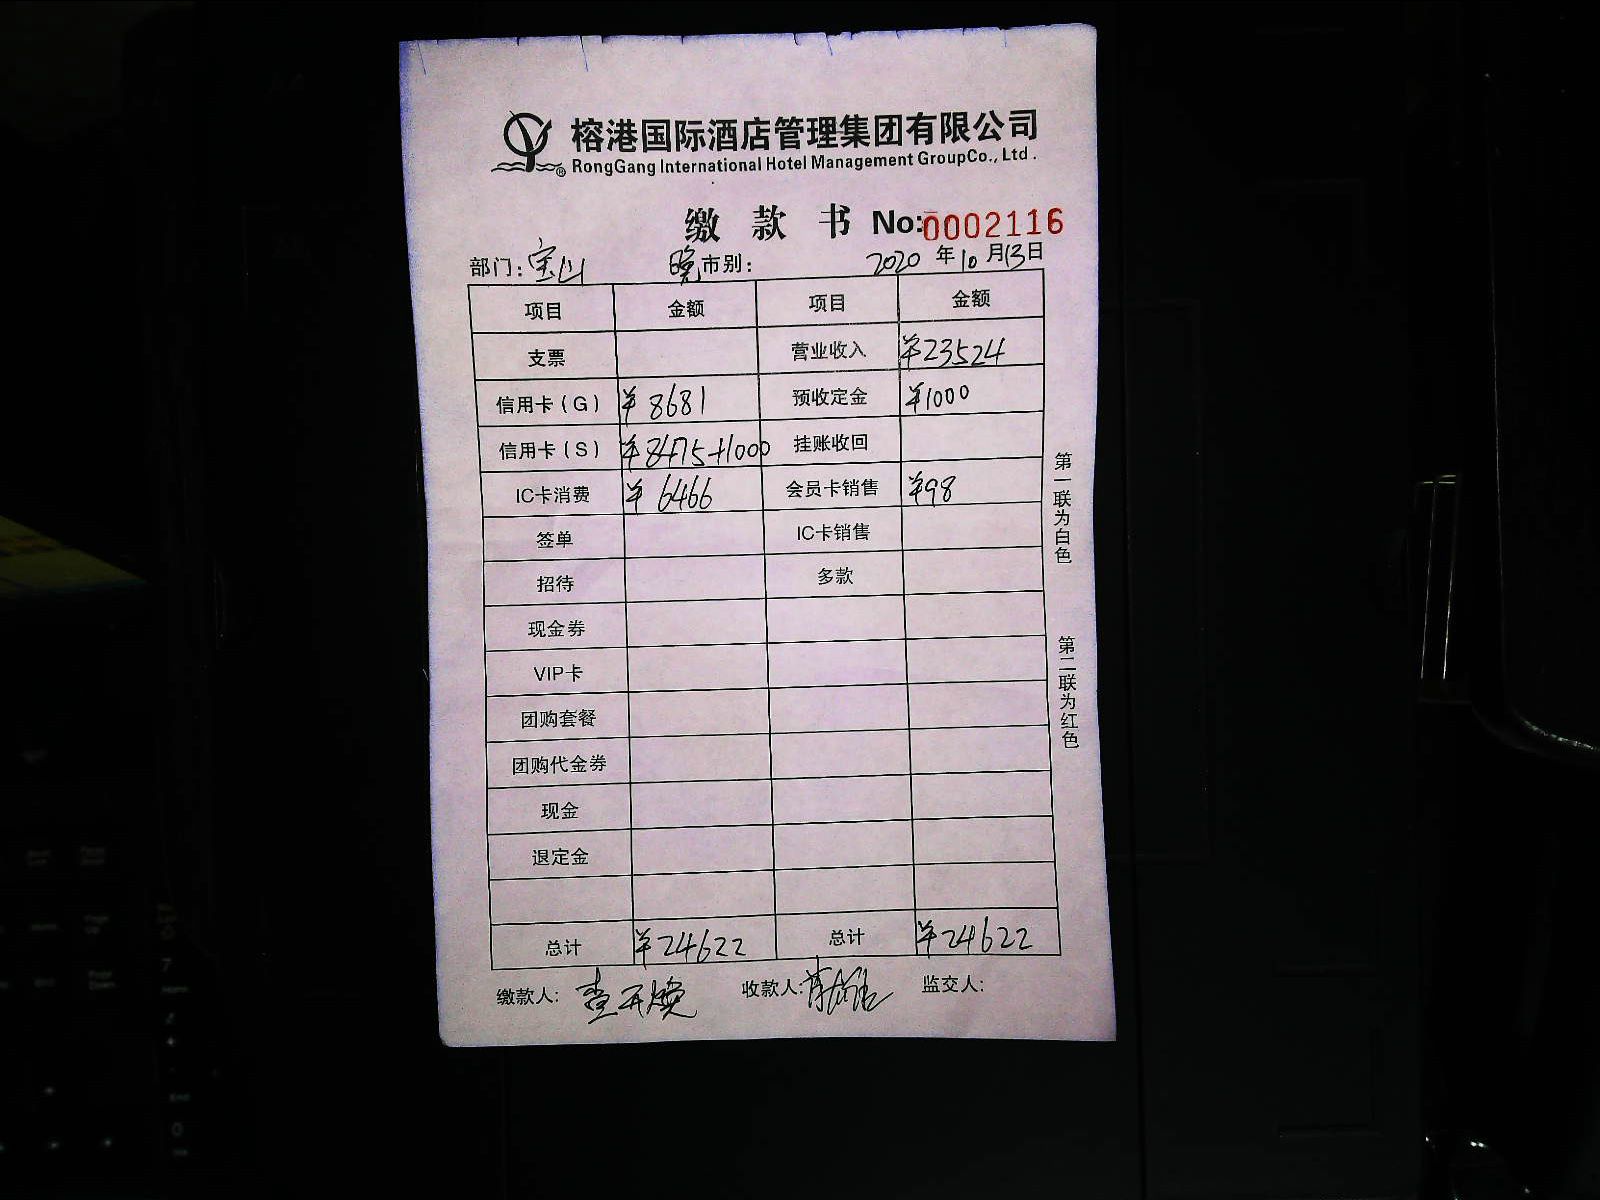 榕港国际酒店管理集团有限公司
RongGang International Hotel Management GroupCo., Ltd.
缴 款 书 No:0002116
部门:宝山 晚市别: 2020年10月13日
项目 金额 项目 金额
支票 营业收入 ¥23524
信用卡(G) ¥8681 预收定金 ¥1000
信用卡(S) ¥8475+1000 挂账收回
IC卡消费 ¥6466 会员卡销售 ¥98
签单 IC卡销售
招待 多款
现金券
VIP卡
团购套餐
团购代金券
现金
退定金
总计 ¥24622 总计 ¥24622
缴款人: 收款人: 监交人:
第一联为白色
第二联为红色